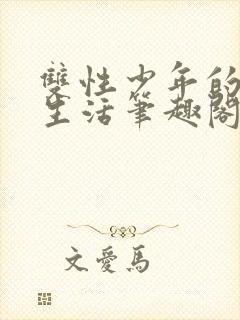 雙性少年的
生活筆趣閣
文愛馬